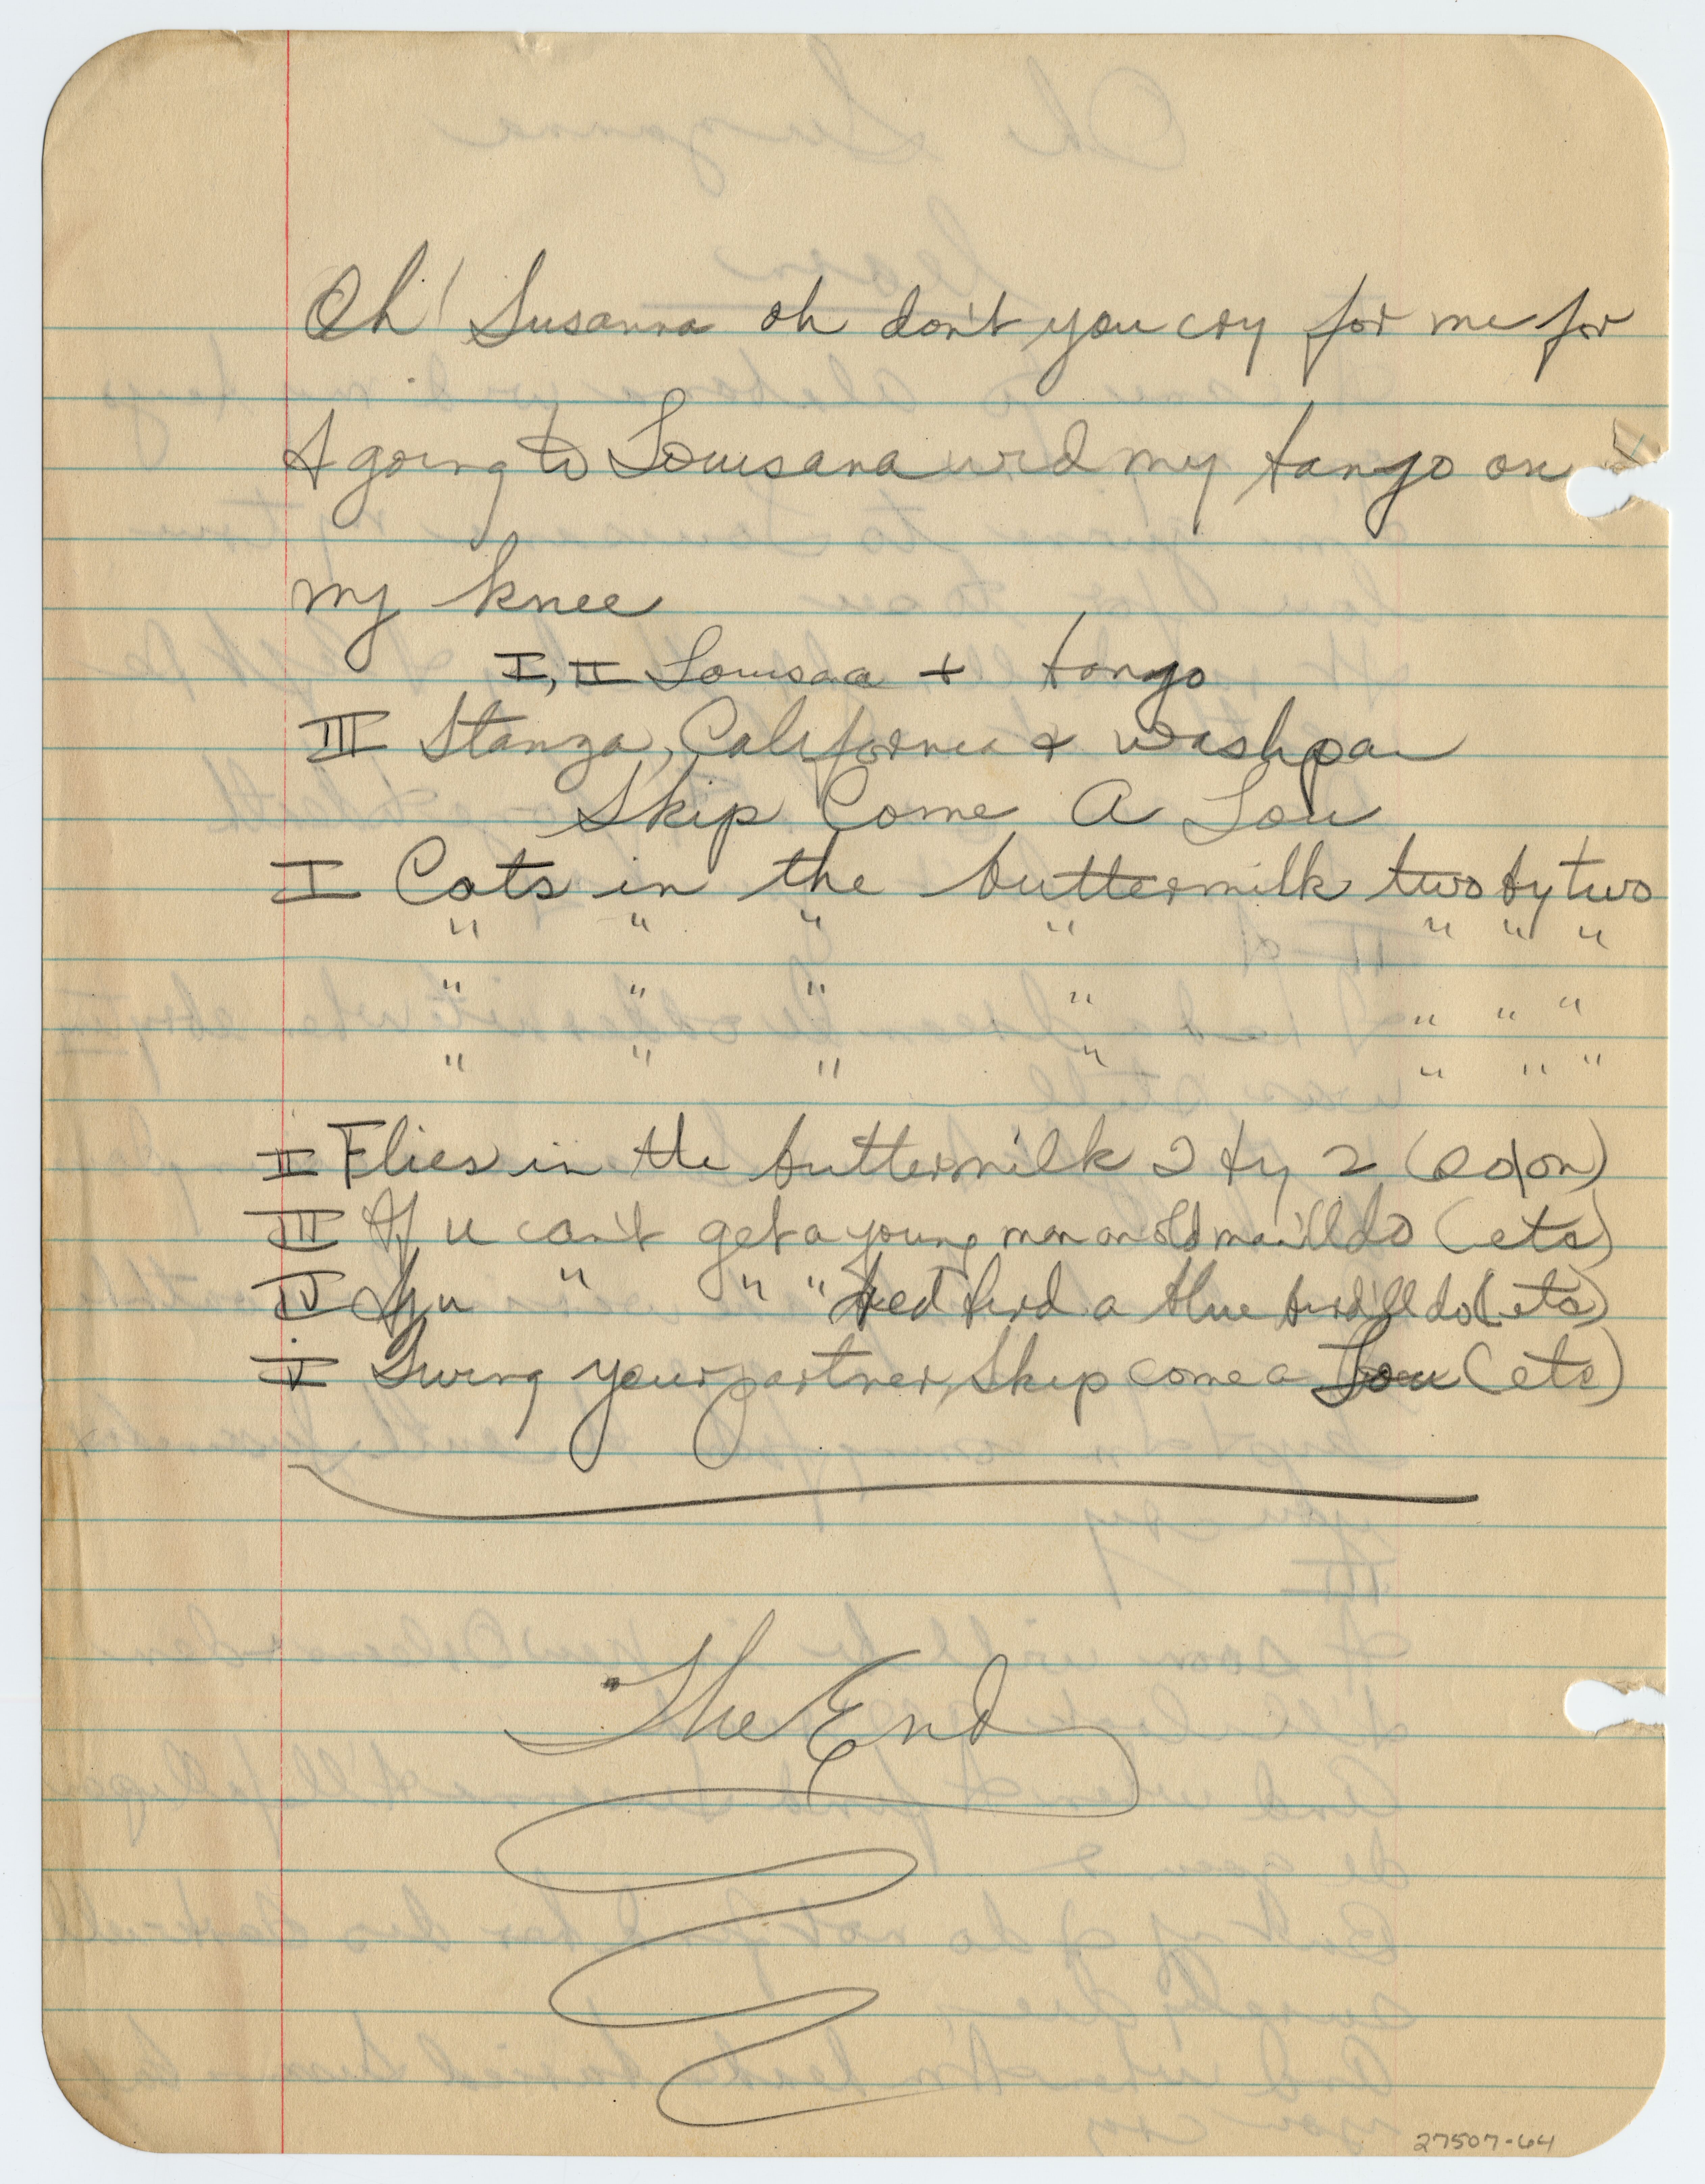 Oh! Susanna oh don't you cry for me for
I going to Louisana wid my bango on
my knee
I, II Louisaa + bango
III Stanza, California & washpan
Skip Come A Lou
I Cats in the buttermilk two by two
" " " " " " "
" " " " " " "
" " " " " " "
II Flies in the buttermilk 2 by 2
III If u can't get a young man an old man'll do (etc)
IV If u " " " red bird a blue bird'll do (etc)
V Swing your partner, Skip come a Lou (etc)
The End
27507-64